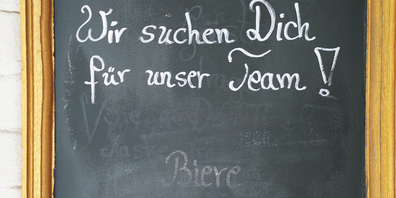 Wir suchen Dich
für unser Team!
Biere